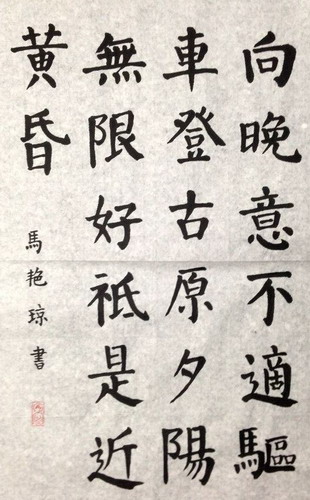 向晚意不適驅
車登古原夕陽
無限好祗是近
黄昏
馬艳琼書